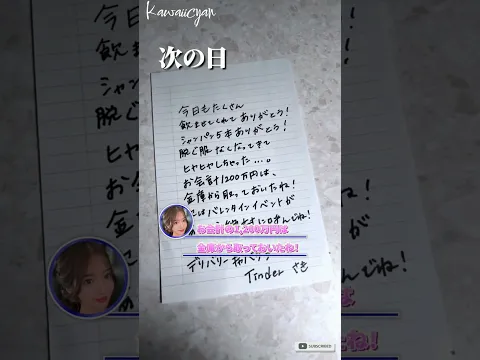 Kawaiicyan
次の日
今日もたくさん
飲ませてくれてありがとう!
シャンパン5本ありがとう!
脱ぐ服なくなってきて
ヒヤヒヤしちゃった…。
お会計1200万円は、
金庫から取っておいたね!
にはバレンタインイベントが
んでね!
お会計の1,200万円は
金庫から取っておいたね!
デリバリー
んでね!
Tinder さき
は
ね!
SUBSCRIBED